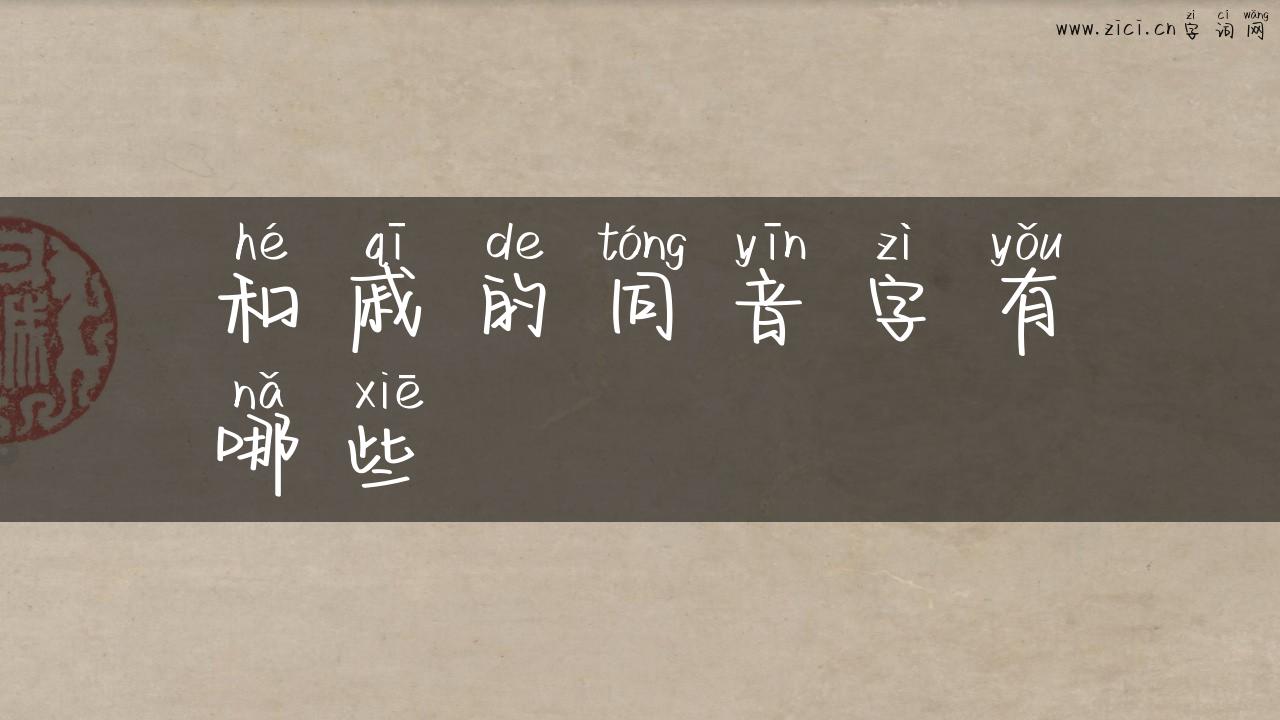 zì cí wǎng
www.zici.cn字词网
hé qī de tóng yīn zì yǒu
和戚的同音字有
nǎ xiē
哪些